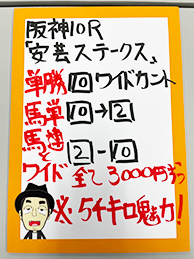 阪神10R
「安芸ステークス」
単勝 10 ワイドカント
馬単 10→2
馬連と
ワイド 2-10
全て3000円ずつ
※54キロ魅力!